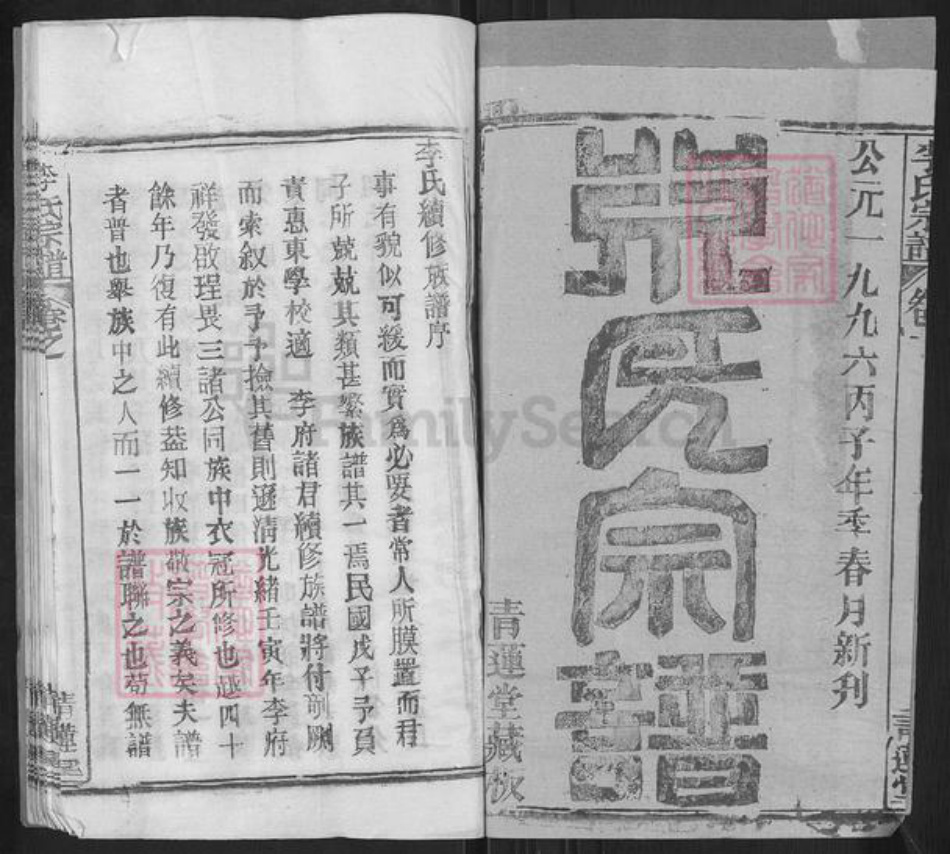 公元一九九六丙子年季春月新刊
李氏宗譜
青蓮堂藏板
李氏宗譜
李氏續修族譜序
事有貌似可緩而實爲必要者常人所膜置而君
子所兢兢其類甚繁族譜其一焉民國戊子予負
責惠東學校適　李府諸君續修族譜將付剞劂
而索叙於予予撿其舊則遜清光緒壬寅年李府
祥發啟珵畏三諸公同族中衣冠所修也越四十
餘年乃復有此續修益知收族敬宗之義矣夫譜
者普也舉族中之人而一一於譜聯之也苟無譜
李氏宗譜
卷之
FamilySearch